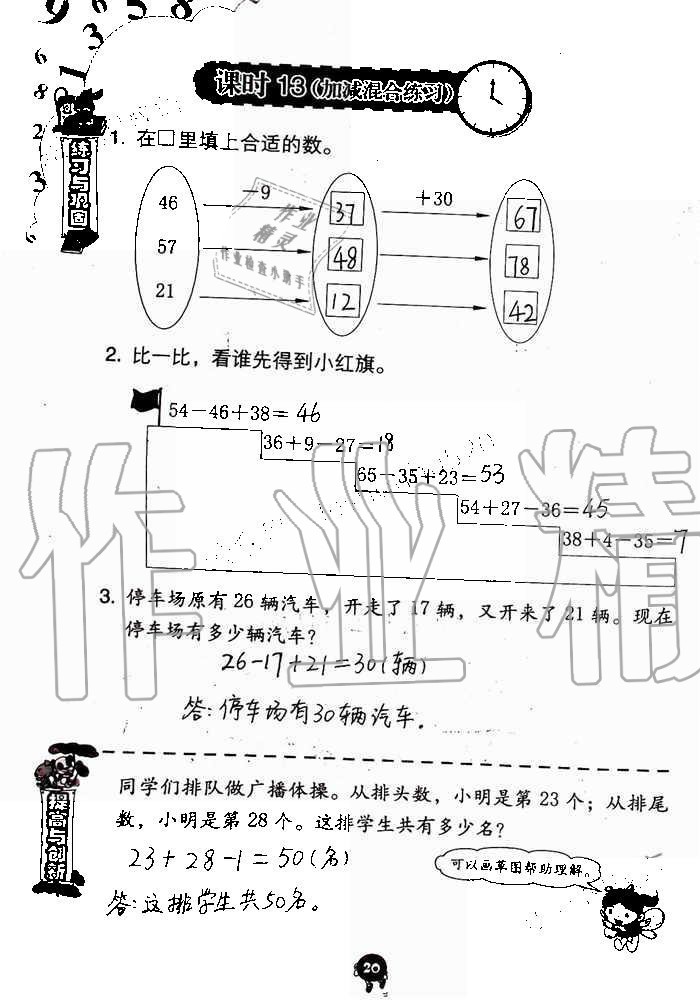 9 3 5 8
6
1
8
2
3
6
课时 13(加减混合练习)
练习与巩固
1. 在□里填上合适的数。
46 −9 37 +30 67
57 48 78
21 12 42
作业精灵
作业检查小助手
2. 比一比，看谁先得到小红旗。
54−46+38=46
36+9−27=18
65−35+23=53
54+27−36=45
38+4−35=7
作业精
3. 停车场原有 26 辆汽车，开走了 17 辆，又开来了 21 辆。现在
停车场有多少辆汽车？
26-17+21=30(辆)
答:停车场有30辆汽车.
提高与创新
同学们排队做广播体操。从排头数，小明是第 23 个；从排尾
数，小明是第 28 个。这排学生共有多少名？
23+28-1=50(名)
可以画草图帮助理解。
答:这排学生共50名。
20